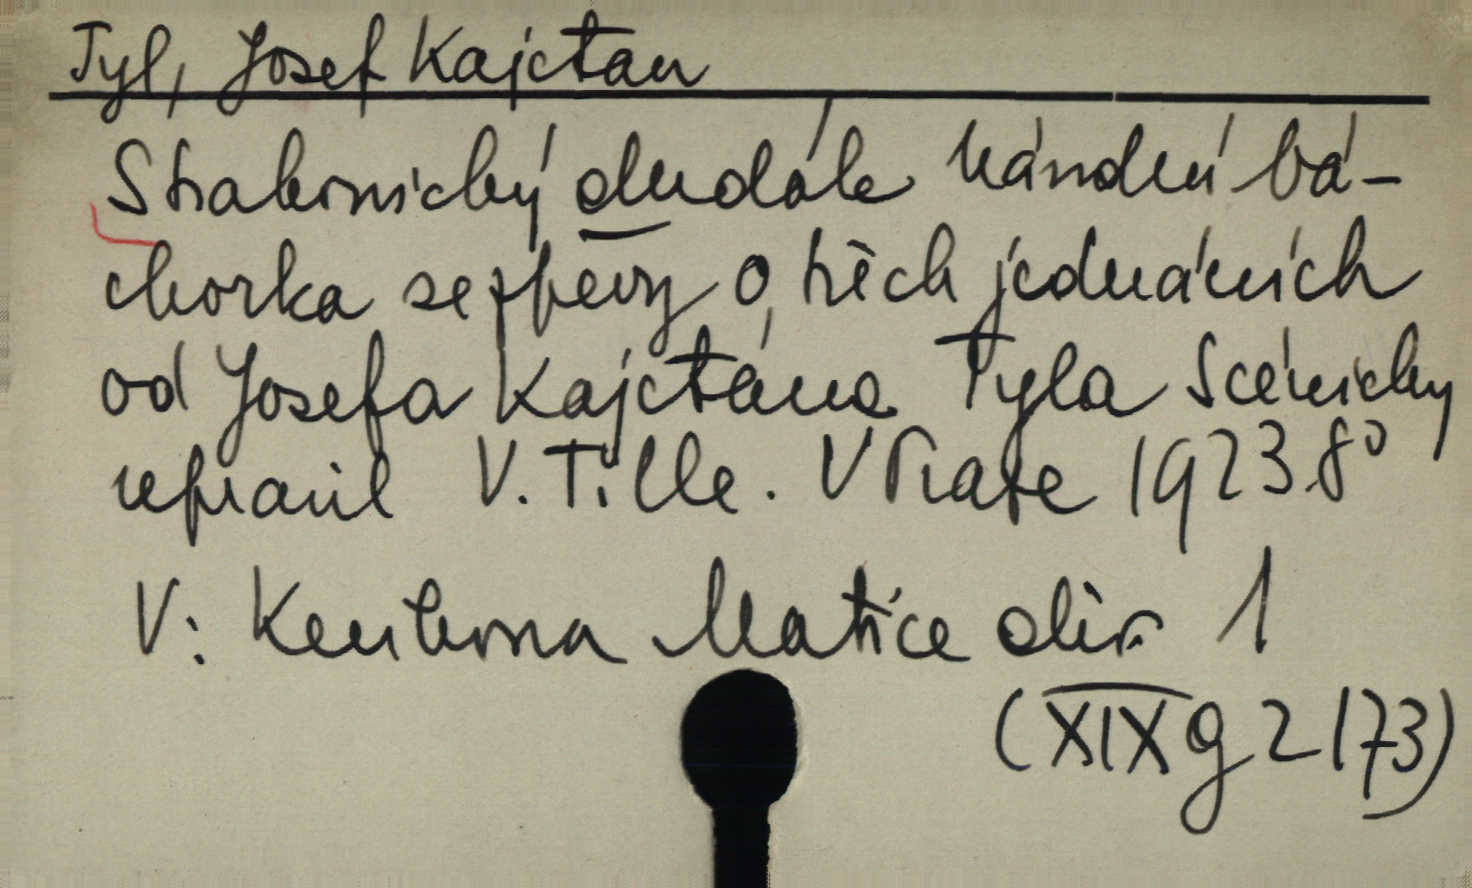 Tyl, Josef Kajetan
Strakonický dudák národní bá-
chorka se zpěvy o třech jednáních
od Josefa Kajetána Tyla Scénicky
upravil V. Tille. V Praze 1923. 8°
V: Kentaurova Matice div. 1
(XIX g 2173)